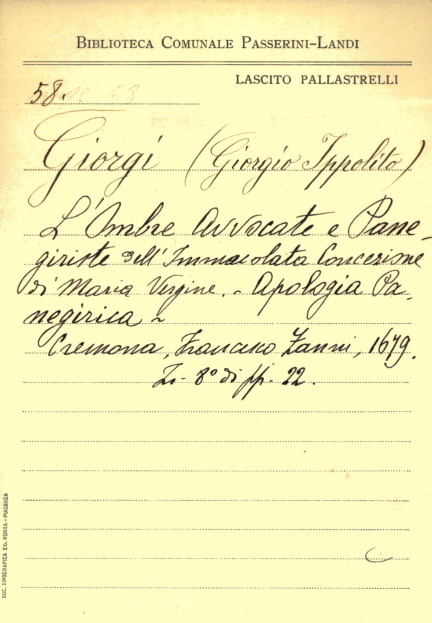 BIBLIOTECA COMUNALE PASSERINI-LANDI
LASCITO PALLASTRELLI
58.
Giorgi (Giorgio Ippolito)
L'Ombre Avvocate e Pane-
giriste dell'Immacolata Concezione
di Maria Vergine. - Apologia Pa-
negirica ~
Cremona, Francesco Zanni, 1679.
In-8° di pp. 22.
SOC. TIPOGRAFICA ED. PORTA - PIACENZA